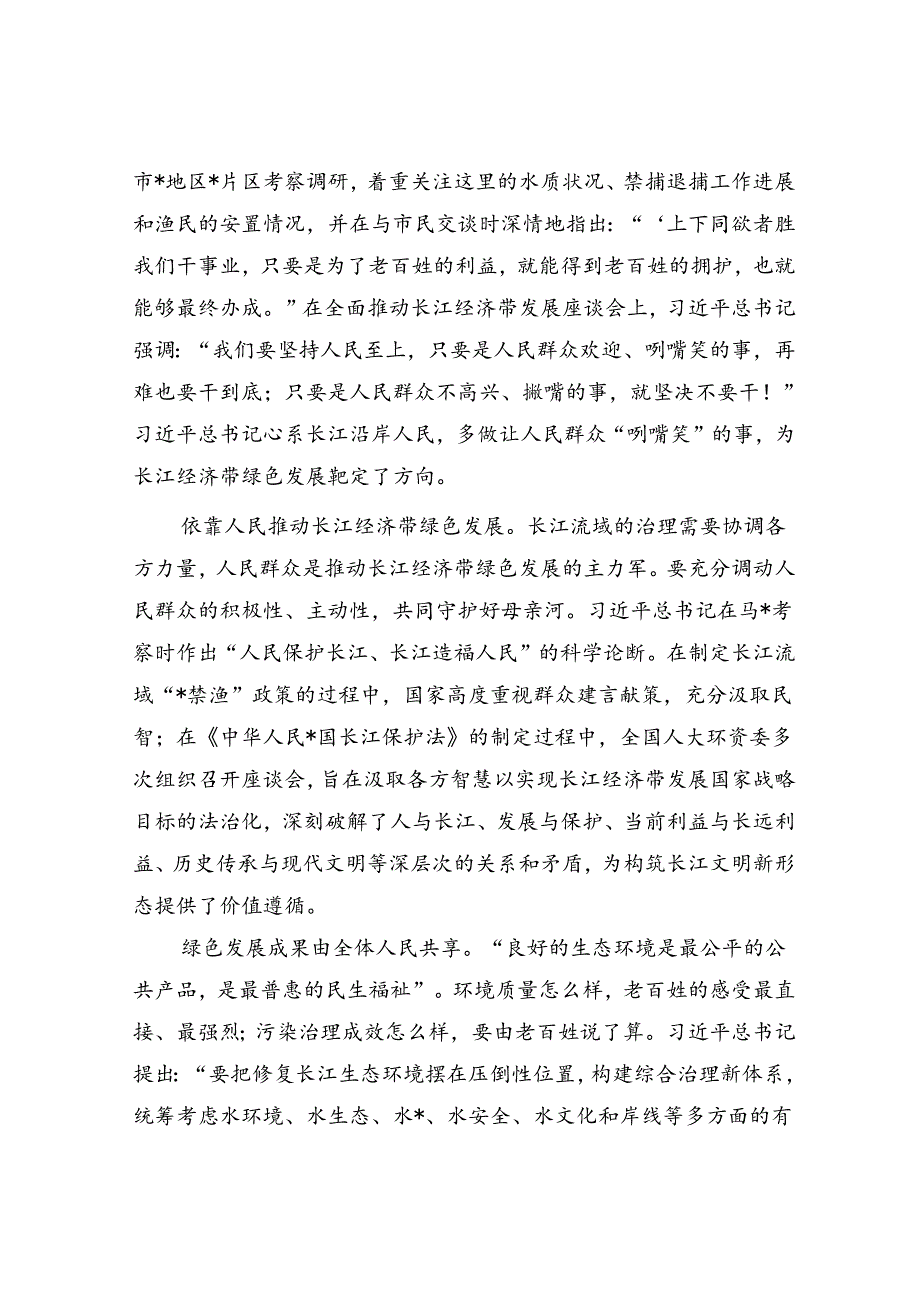 市*地区*片区考察调研，着重关注这里的水质状况、禁捕退捕工作进展
和渔民的安置情况，并在与市民交谈时深情地指出：“‘上下同欲者胜
我们干事业，只要是为了老百姓的利益，就能得到老百姓的拥护，也就
能够最终办成。”在全面推动长江经济带发展座谈会上，习近平总书记
强调：“我们要坚持人民至上，只要是人民群众欢迎、咧嘴笑的事，再
难也要干到底；只要是人民群众不高兴、撇嘴的事，就坚决不要干！”
习近平总书记心系长江沿岸人民，多做让人民群众“咧嘴笑”的事，为
长江经济带绿色发展靶定了方向。
依靠人民推动长江经济带绿色发展。长江流域的治理需要协调各
方力量，人民群众是推动长江经济带绿色发展的主力军。要充分调动人
民群众的积极性、主动性，共同守护好母亲河。习近平总书记在马*考
察时作出“人民保护长江、长江造福人民”的科学论断。在制定长江流
域“*禁渔”政策的过程中，国家高度重视群众建言献策，充分汲取民
智；在《中华人民*国长江保护法》的制定过程中，全国人大环资委多
次组织召开座谈会，旨在汲取各方智慧以实现长江经济带发展国家战略
目标的法治化，深刻破解了人与长江、发展与保护、当前利益与长远利
益、历史传承与现代文明等深层次的关系和矛盾，为构筑长江文明新形
态提供了价值遵循。
绿色发展成果由全体人民共享。“良好的生态环境是最公平的公
共产品，是最普惠的民生福祉”。环境质量怎么样，老百姓的感受最直
接、最强烈；污染治理成效怎么样，要由老百姓说了算。习近平总书记
提出：“要把修复长江生态环境摆在压倒性位置，构建综合治理新体系，
统筹考虑水环境、水生态、水*、水安全、水文化和岸线等多方面的有